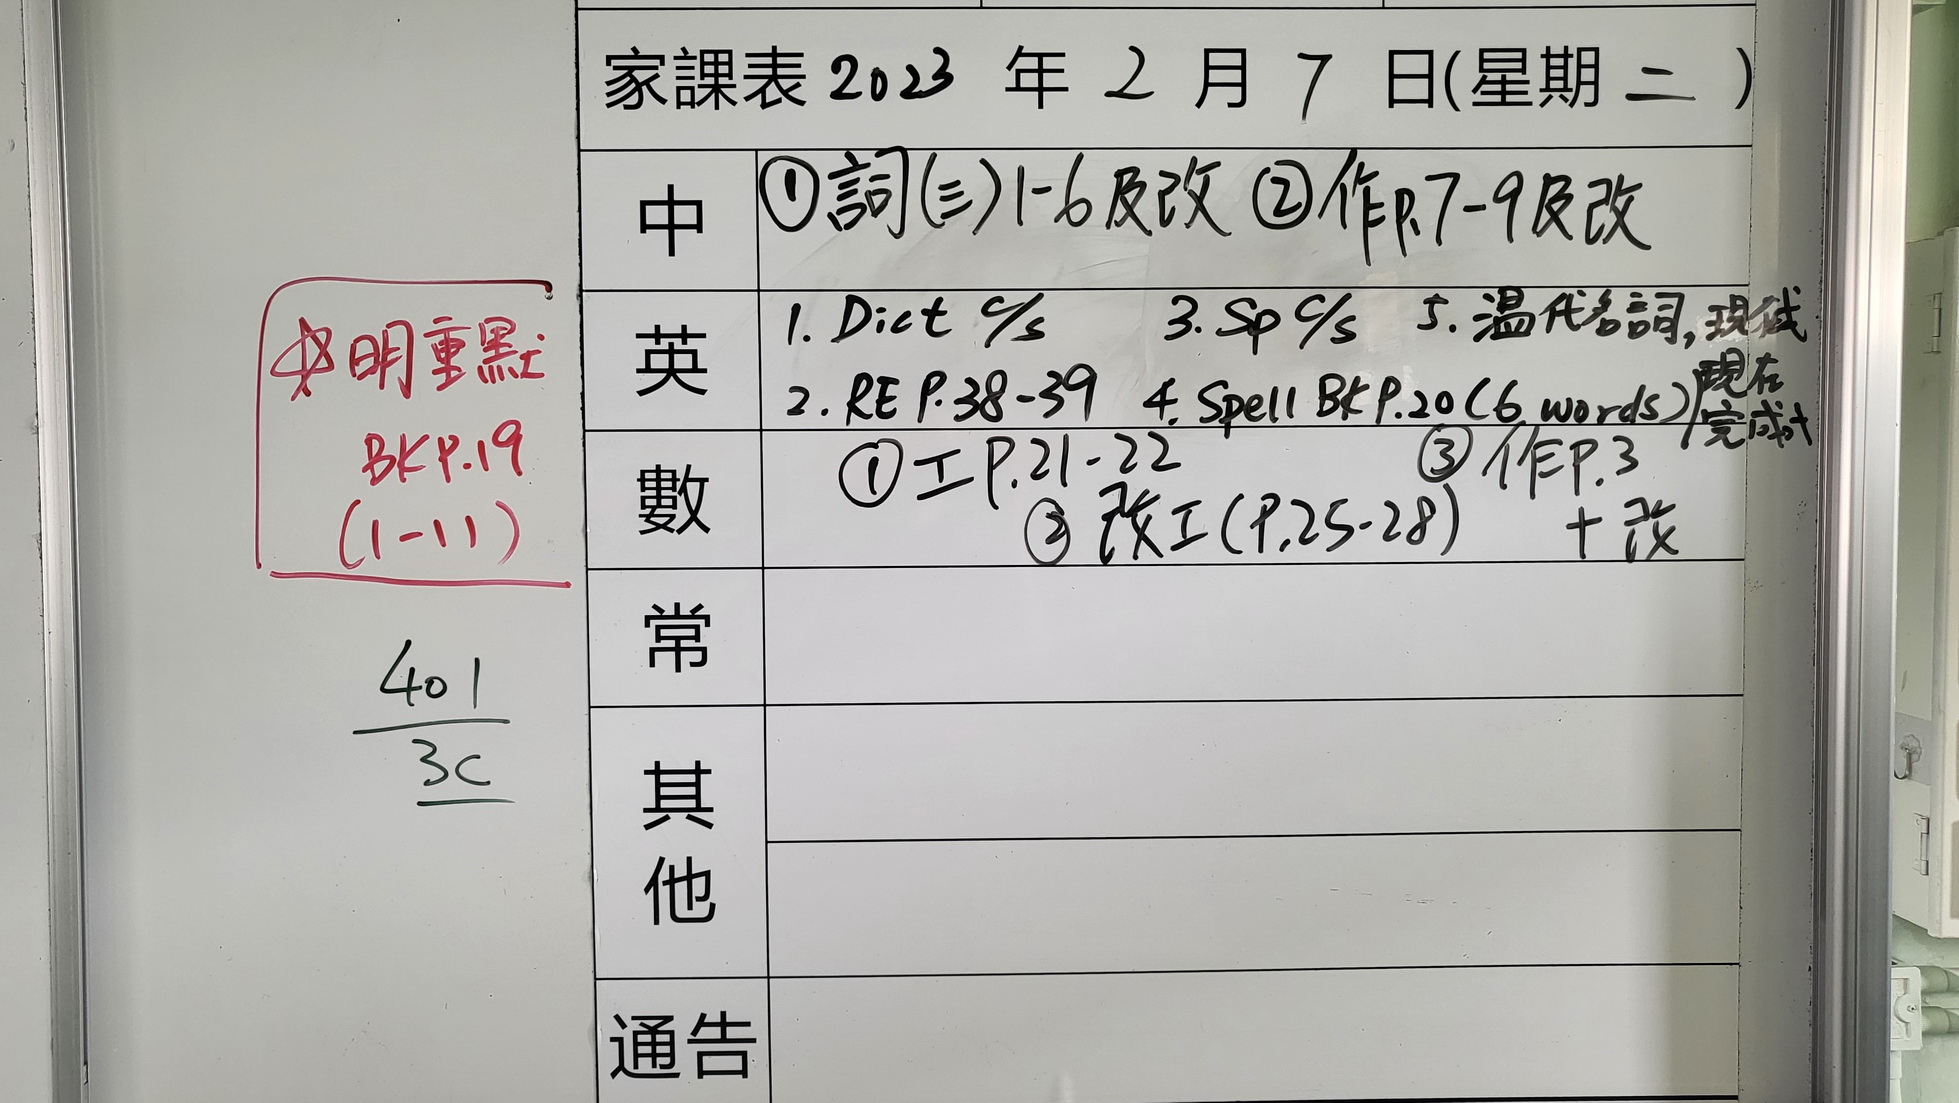 家課表 2023 年 2 月 7 日(星期 二 )
中
①詞(三)1-6及改 ②作P.7-9及改
英
1. Dict c/s 3. Sp c/s 5. 溫代名詞, 現在
2. RE P.38-39 4. Spell BK P.20 (6 words) 現在
完成式
數
①工P.21-22 ③作P.3
②改工(P.25-28) +改
常
其他
通告
☆明重默
BK P.19
(1-11)
401
3C